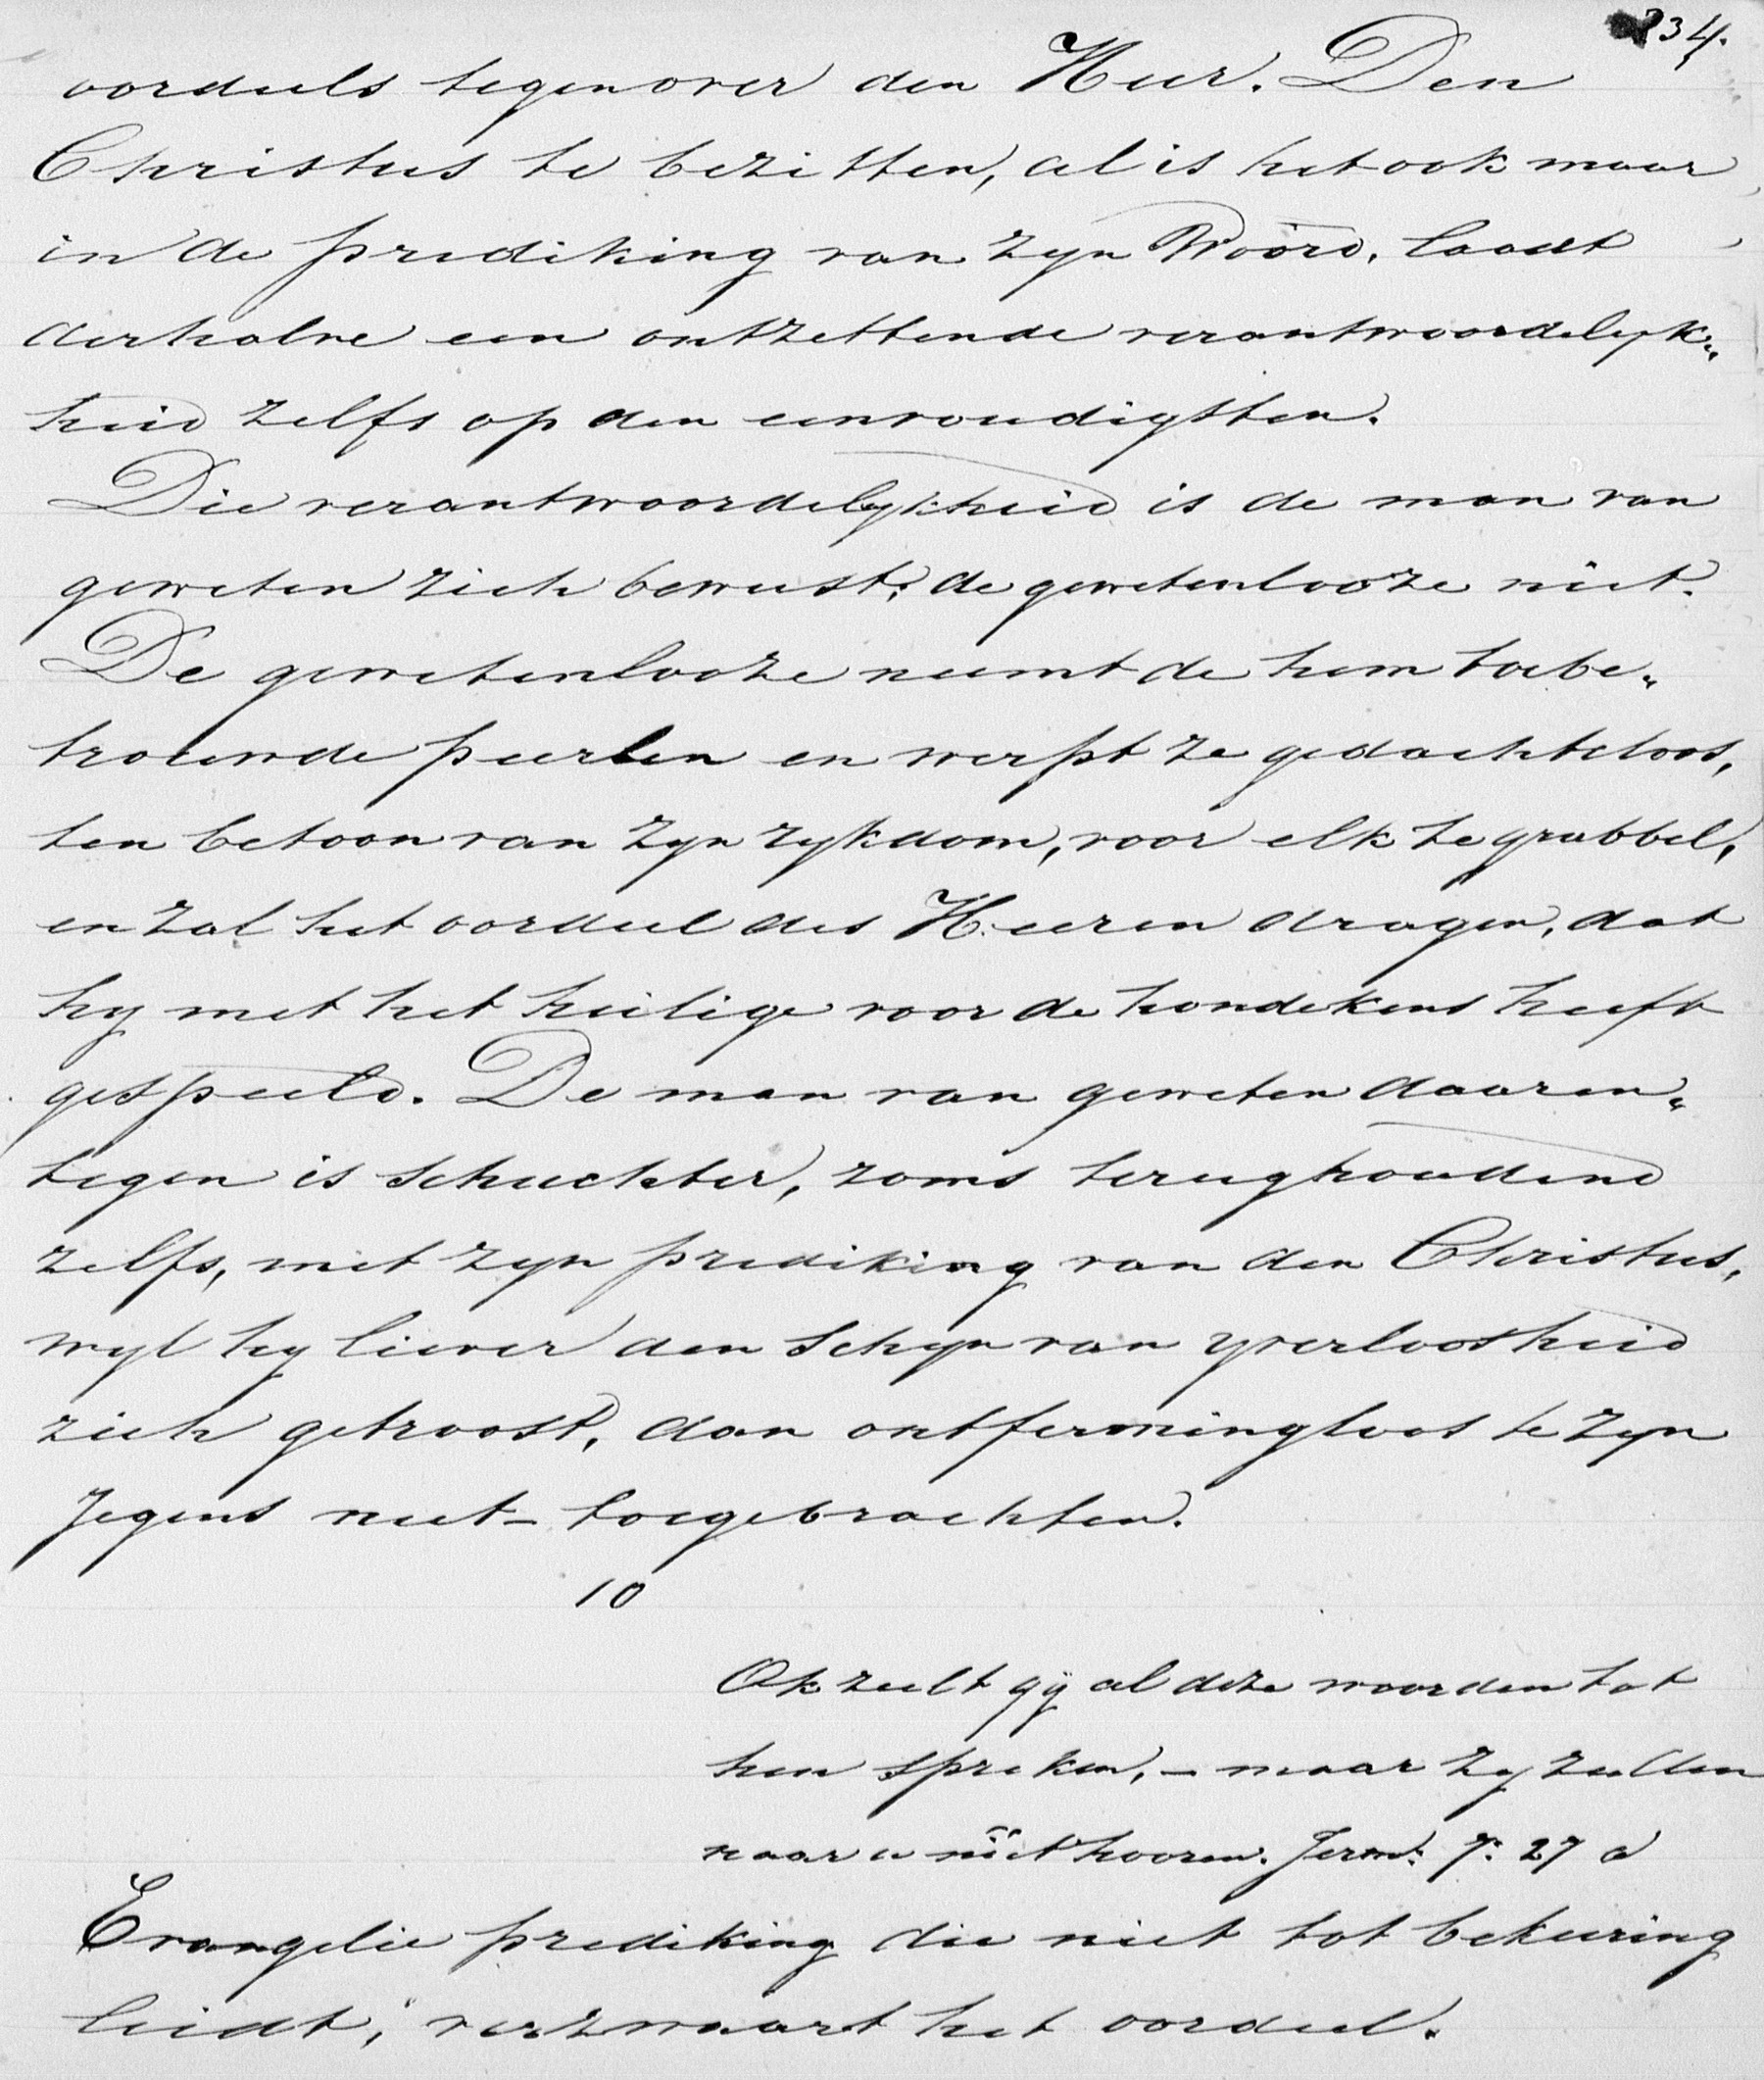 234.
oordeels tegenover den Heer. Den
Christus te bezitten, al is het ook maar
in de prediking van zyn Woord, laadt
derhalve een ontzettende verantwoordelyk„
heid zelfs op den eenvoudigsten.
Die verantwoordelykheid is de man van
geweten zich bewust; de gewetenlooze niet.
De gewetenlooze neemt de hem toebe„
trouwde peerlen en werpt ze gedachteloos,
ten betoon van zyn rykdom, voor elk te grabbel,
en zal het oordeel des Heeren dragen, dat
hy met het heilige voor de hondekens heeft
gespeeld. De man van geweten daaren„
tegen is schuchter, soms terughoudend
zelfs, met zyn prediking van den Christus,
wyl hy liever den schyn van yverloosheid
zich getroost, dan ontfermingloos te zyn
jegens niet-toegebrachten.
10
Ook zult gÿ al deze woorden tot
hen spreken, – maar zy zullen
naar u niet hooren. Jerm: 7: 27 a
Evangelie prediking die niet tot bekeering
leidt, verzwaart het oordeel.